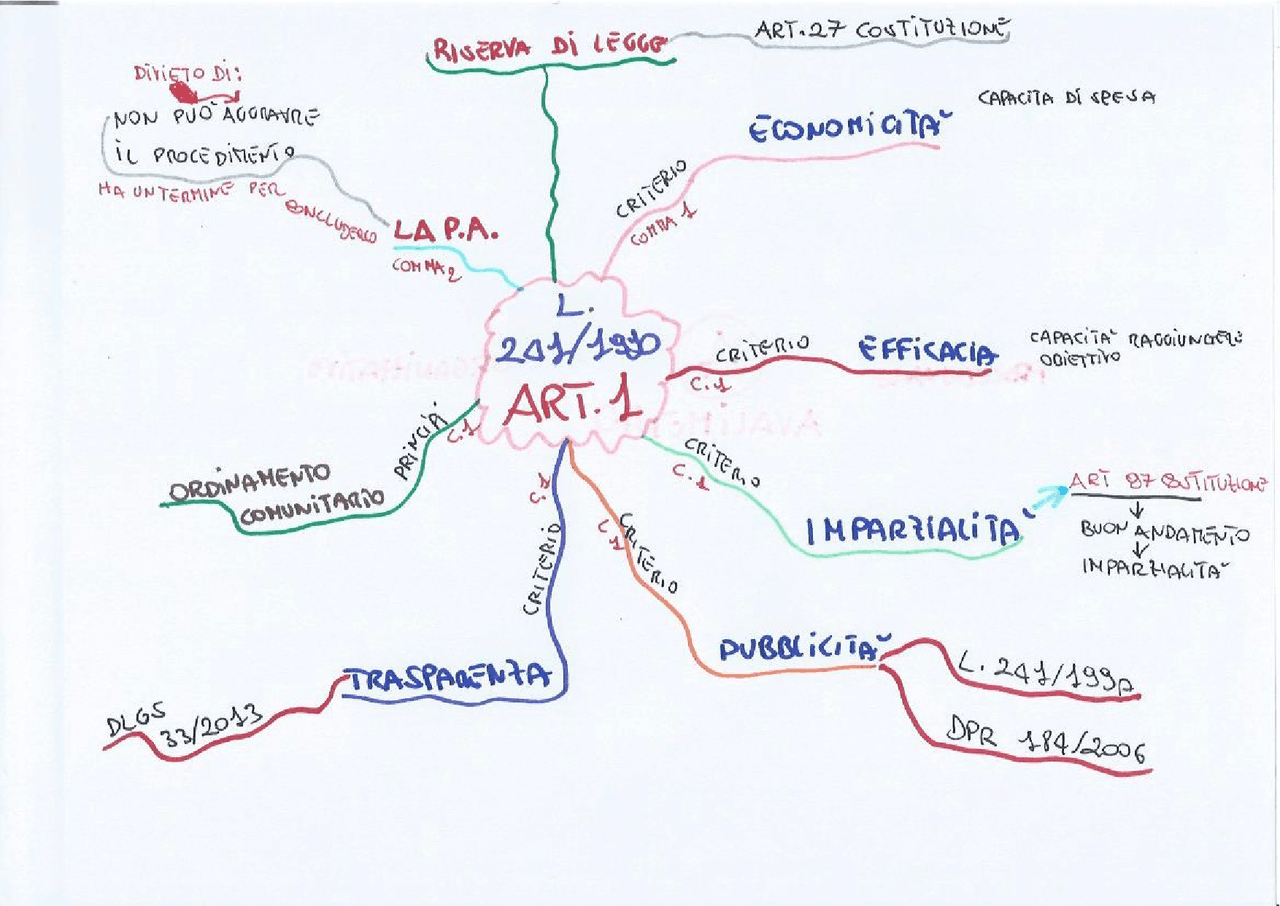 RISERVA DI LEGGE
ART.27 COSTITUZIONE
DIVIETO DI:
NON PUÒ AGGRAVRE
IL PROCEDIMENTO
HA UN TERMINE PER
CONCLUDERLO
LA P.A.
COMMA 2
CRITERIO
COMMA 1
ECONOMICITÀ
CAPACITA DI SPESA
L.
241/1990
ART.1
CRITERIO
C.1
EFFICACIA
CAPACITÀ RAGGIUNGERE
OBIETTIVO
PRINCIPI
C.1
ORDINAMENTO
COMUNITARIO
CRITERIO
C.1
IMPARZIALITÀ
ART 97 COSTITUZIONE
BUON ANDAMENTO
IMPARZIALITÀ
C.1
CRITERIO
TRASPARENZA
DLGS
33/2013
CRITERIO
C.1
PUBBLICITÀ
L. 241/1990
DPR 184/2006